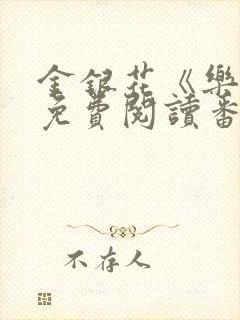 金銀花《樂
免費閱讀番
不存人